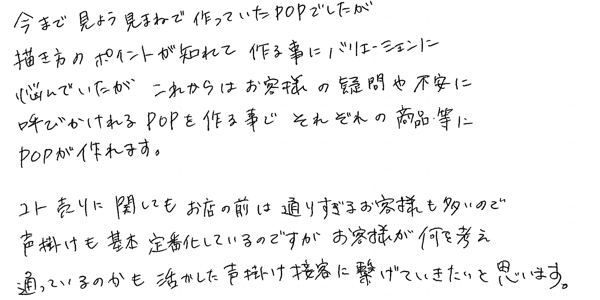 今まで見よう見まねで作っていたPOPでしたが
描き方のポイントが知れて作る事にバリエーションに
悩んでいたがこれからはお客様の疑問や不安に
呼びかけれるPOPを作る事でそれぞれの商品等に
POPが作れます。
コト売りに関してもお店の前は通りすぎるお客様も多いので
声掛けも基本定番化しているのですがお客様が何を考え
通っているのかも活かした声掛け接客に繋げていきたいと思います。